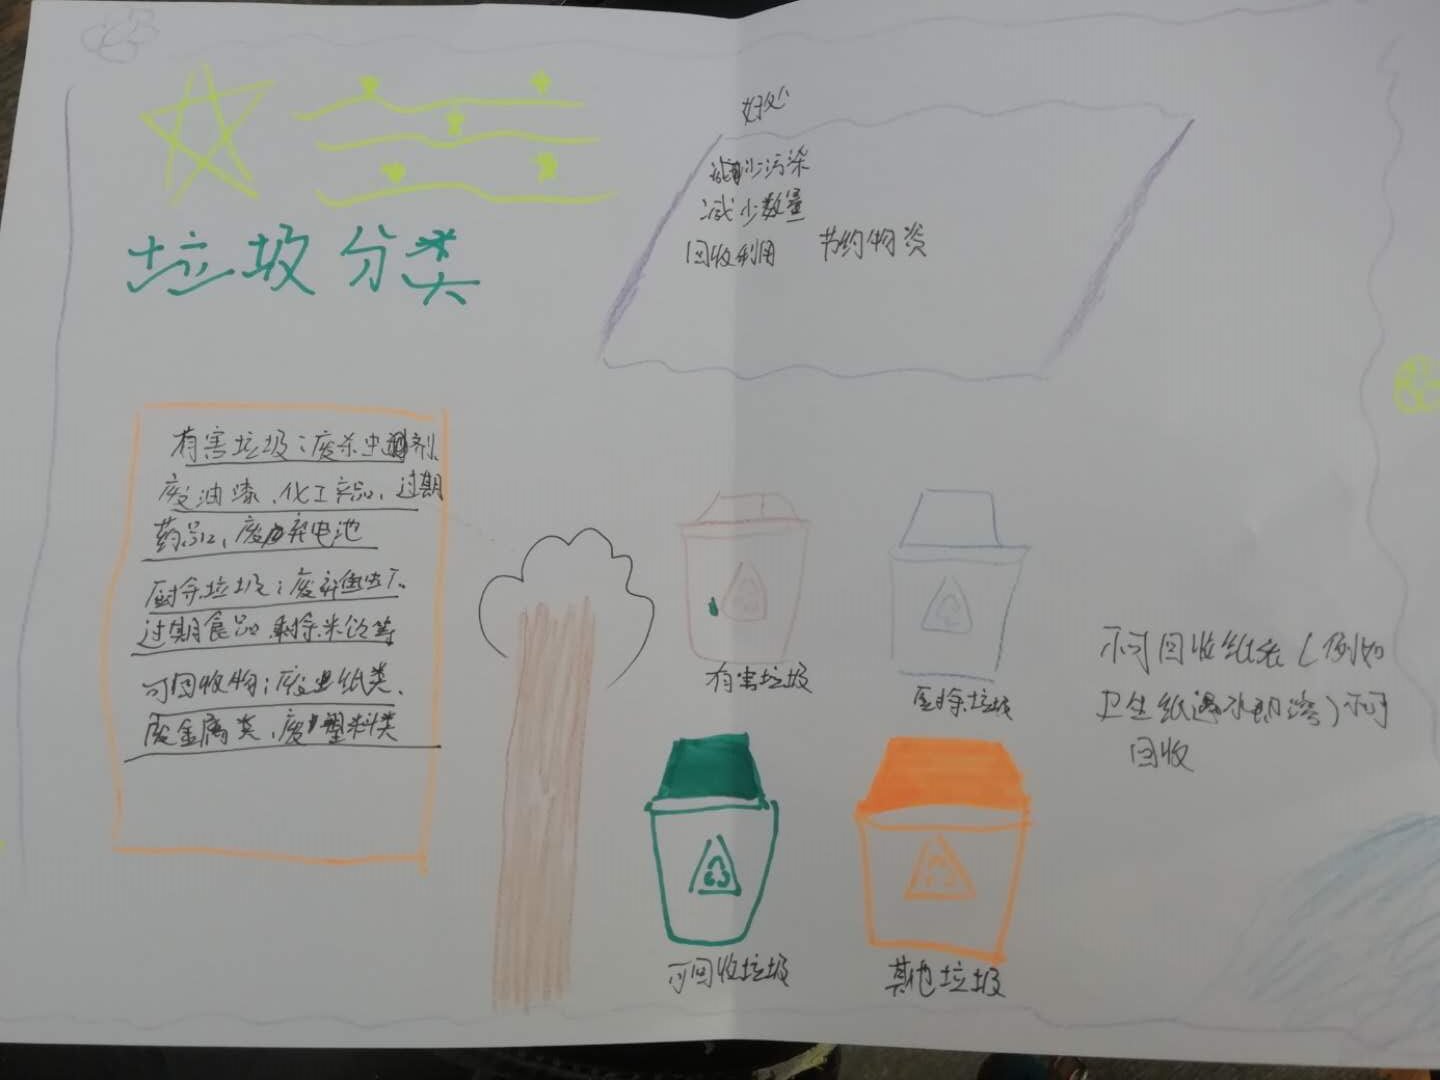 垃圾分类
好处
减少污染
减少数量
回收利用 节约物资
有害垃圾:废杀虫剂、
废油漆、化工产品、过期
药品、废弃电池
厨余垃圾:废弃鱼虫、
过期食品 剩余米饭等
可回收物:废纸类、
废金属类、废塑料类
有害垃圾
厨余垃圾
可回收垃圾
其他垃圾
不可回收纸张(例如
卫生纸遇水即溶)不可
回收